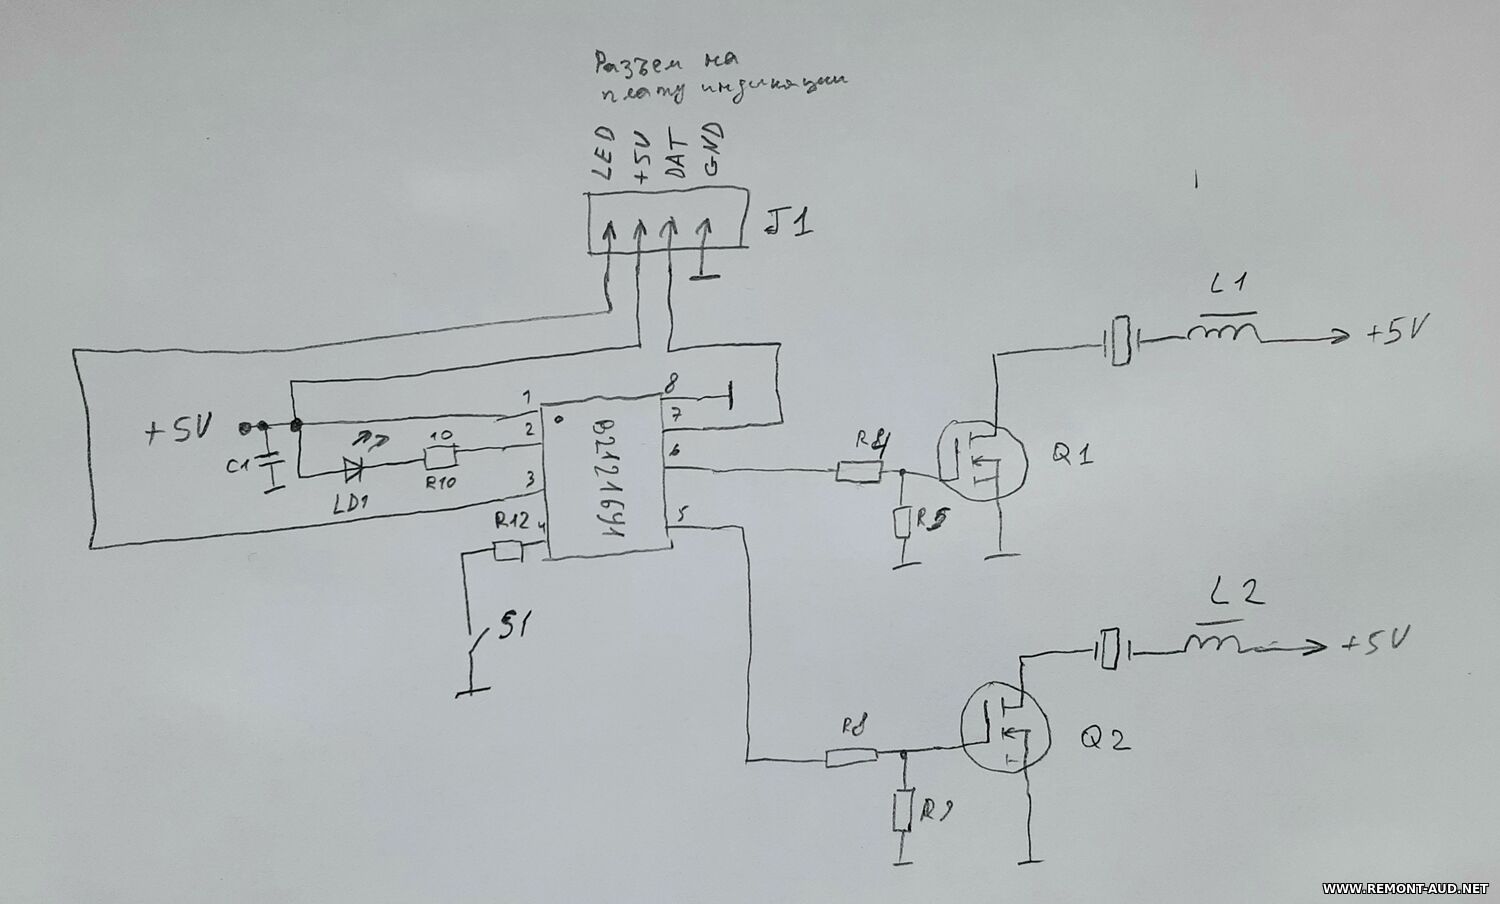 Разъем на
плату индикации
LED
+5V
DAT
GND
J1
L1
+5V
1
8
2
7
+5V
10
6
R4
Q1
C1
R10
3
LD1
B2121691
R12
4
5
R5
S1
L2
+5V
R8
Q2
R9
WWW.REMONT-AUD.NET